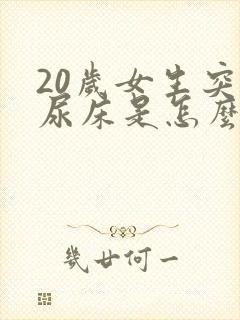 20歲女生突
尿床是怎麼
幾廿何一